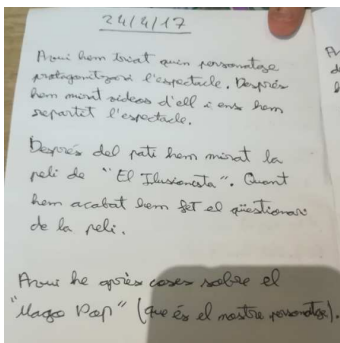 24/4/17
Avui hem triat quin personatge
protagonitzarà l'espectacle. Després
hem mirat videos d'ell i ens hem
repartit l'espectacle.
Després del pati hem mirat la
peli de "El Ilusionista". Quant
hem acabat hem fet el qüestionari
de la peli.
Avui he après coses sobre el
"Mago Pop" (que és el nostre personatge).